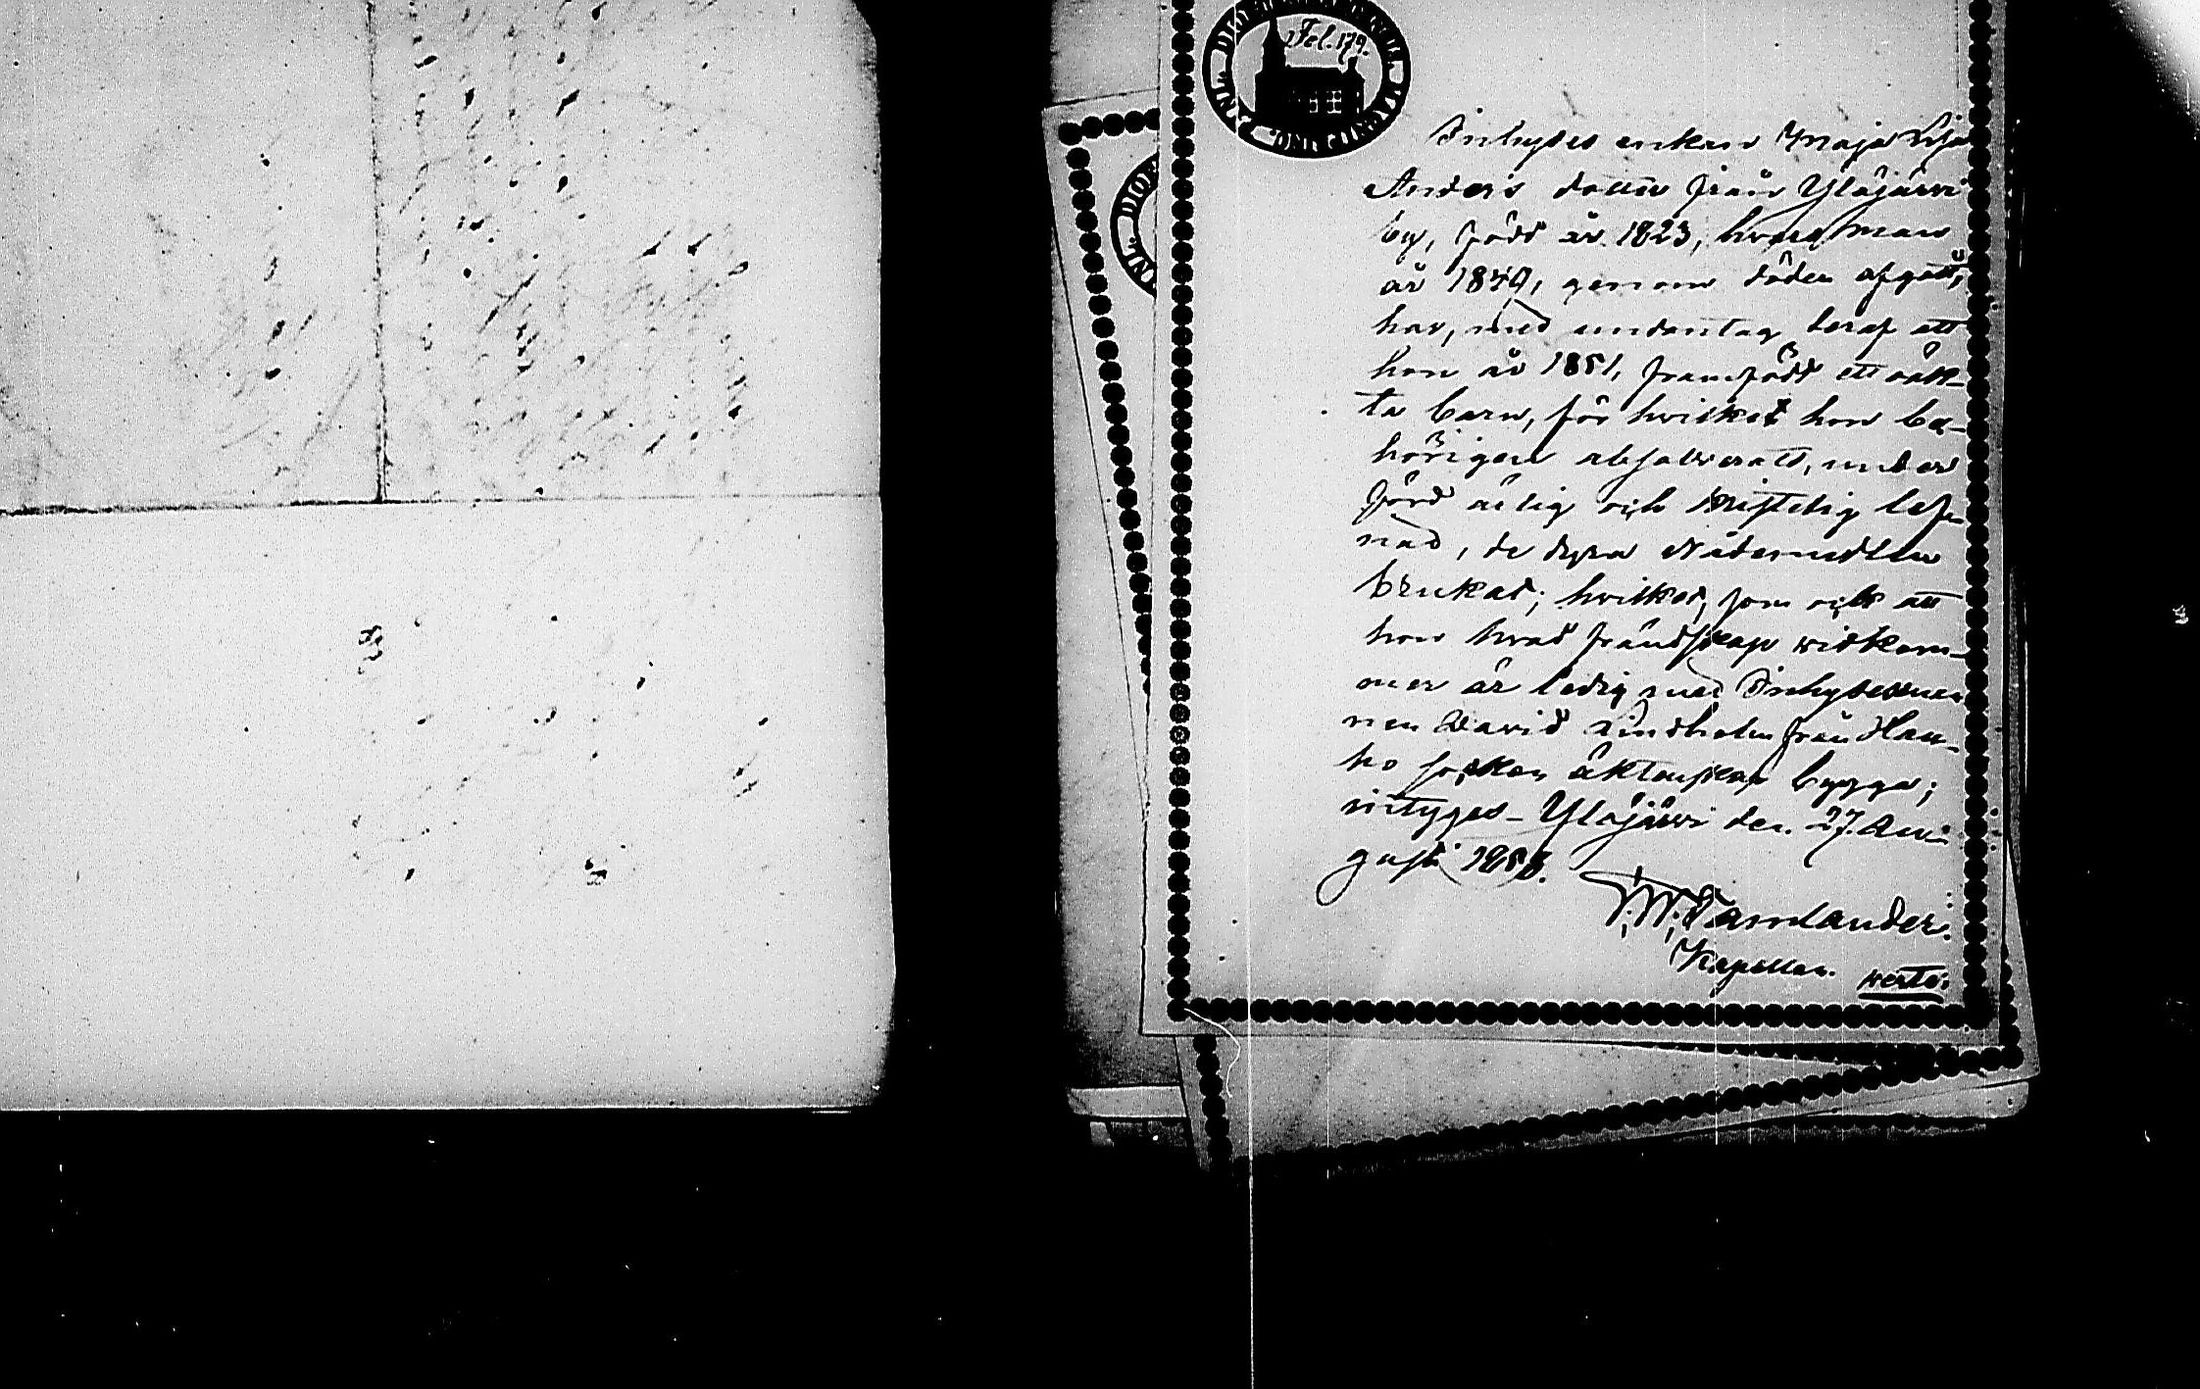 Fol. 179.
Inhyses enkan Maja Lisa
Anders dotter från Ylöjärvi
by, född år 1823, hvars man
år 1849, genom döden afgått,
har, med undantag deraf att
hon år 1851, framfödt ett oäk-
ta barn, för hvilket hon be-
hörigen absolverats, under
förd ärlig och kristelig lef-
nad, de dyra Nådemedlen
brukat; hvilket, som ock att
hon hvad frändskap widkom-
mer är ledig med Inhyses
nen David Lindholm från Hau-
ho socken äktenskap bygga;
intygas - Ylöjärvi den 27. Au-
gusti 185
Tamlander.
Kapellan. verte.